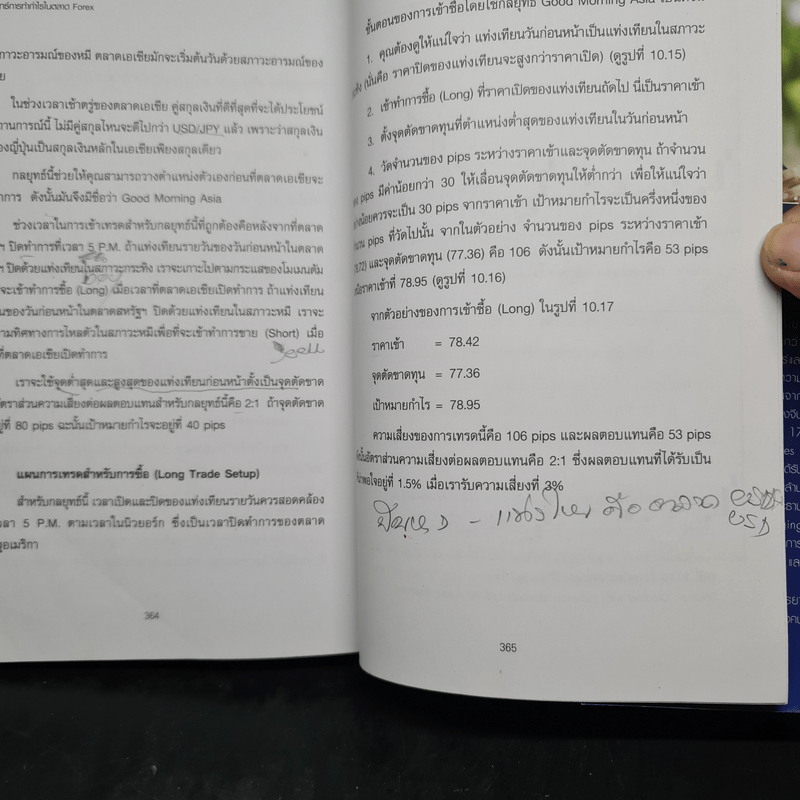 ธ์การทำกำไรในตลาด Forex
ภาวะอารมณ์ของหมี ตลาดเอเชียมักจะเริ่มต้นวันด้วยสภาวะอารมณ์ของ
ย
ในช่วงเวลาเช้าตรู่ของตลาดเอเชีย คู่สกุลเงินที่ดีที่สุดที่จะได้ประโยชน์
านการณ์นี้ ไม่มีคู่สกุลไหนจะดีไปกว่า USD/JPY แล้ว เพราะว่าสกุลเงิน
องญี่ปุ่นเป็นสกุลเงินหลักในเอเชียเพียงสกุลเดียว
กลยุทธ์นี้ช่วยให้คุณสามารถวางตำแหน่งตัวเองก่อนที่ตลาดเอเชียจะ
ำการ ดังนั้นมันจึงมีชื่อว่า Good Morning Asia
ช่วงเวลาในการเข้าเทรดสำหรับกลยุทธ์นี้ที่ถูกต้องคือหลังจากที่ตลาด
ฯ ปิดทำการที่เวลา 5 P.M. ถ้าแท่งเทียนรายวันของวันก่อนหน้าในตลาด
ฯ ปิดด้วยแท่งเทียนในสภาวะกระทิง เราจะเกาะไปตามกระแสของโมเมนตัม
จะเข้าทำการซื้อ (Long) เมื่อเวลาที่ตลาดเอเชียเปิดทำการ ถ้าแท่งเทียน
นของวันก่อนหน้าในตลาดสหรัฐฯ ปิดด้วยแท่งเทียนในสภาวะหมี เราจะ
ามทิศทางการไหลตัวในสภาวะหมีเพื่อที่จะเข้าทำการขาย (Short) เมื่อ
ที่ตลาดเอเชียเปิดทำการ
เราจะใช้จุดต่ำสุดและสูงสุดของแท่งเทียนก่อนหน้าตั้งเป็นจุดตัดขาด
อัตราส่วนความเสี่ยงต่อผลตอบแทนสำหรับกลยุทธ์นี้คือ 2:1 ถ้าจุดตัดขาด
ยู่ที่ 80 pips ฉะนั้นเป้าหมายกำไรจะอยู่ที่ 40 pips
แผนการเทรดสำหรับการซื้อ (Long Trade Setup)
สำหรับกลยุทธ์นี้ เวลาเปิดและปิดของแท่งเทียนรายวันควรสอดคล้อง
วลา 5 P.M. ตามเวลาในนิวยอร์ก ซึ่งเป็นเวลาปิดทำการของตลาด
ฐอเมริกา
364
ขั้นตอนของการเข้าซื้อโดยใช้กลยุทธ์ Good Morning Asia
1. คุณต้องดูให้แน่ใจว่า แท่งเทียนวันก่อนหน้าเป็นแท่งเทียนในสภาวะ
(นั่นคือ ราคาปิดของแท่งเทียนจะสูงกว่าราคาเปิด) (ดูรูปที่ 10.15)
2. เข้าทำการซื้อ (Long) ที่ราคาเปิดของแท่งเทียนถัดไป นี่เป็นราคาเข้า
3. ตั้งจุดตัดขาดทุนที่ตำแหน่งต่ำสุดของแท่งเทียนในวันก่อนหน้า
4. วัดจำนวนของ pips ระหว่างราคาเข้าและจุดตัดขาดทุน ถ้าจำนวน
pips มีค่าน้อยกว่า 30 ให้เลื่อนจุดตัดขาดทุนให้ต่ำกว่า เพื่อให้แน่ใจว่า
างน้อยควรจะเป็น 30 pips จากราคาเข้า เป้าหมายกำไรจะเป็นครึ่งหนึ่งของ
นวน pips ที่วัดไปนั้น จากในตัวอย่าง จำนวนของ pips ระหว่างราคาเข้า
และจุดตัดขาดทุน (77.36) คือ 106 ดังนั้นเป้าหมายกำไรคือ 53 pips
ราคาเข้าที่ 78.95 (ดูรูปที่ 10.16)
จากตัวอย่างของการเข้าซื้อ (Long) ในรูปที่ 10.17
ราคาเข้า = 78.42
จุดตัดขาดทุน = 77.36
เป้าหมายกำไร = 78.95
ความเสี่ยงของการเทรดนี้คือ 106 pips และผลตอบแทนคือ 53 pips
นั้นอัตราส่วนความเสี่ยงต่อผลตอบแทนคือ 2:1 ซึ่งผลตอบแทนที่ได้รับเป็น
น่าพอใจอยู่ที่ 1.5% เมื่อเรารับความเสี่ยงที่ 3%
365